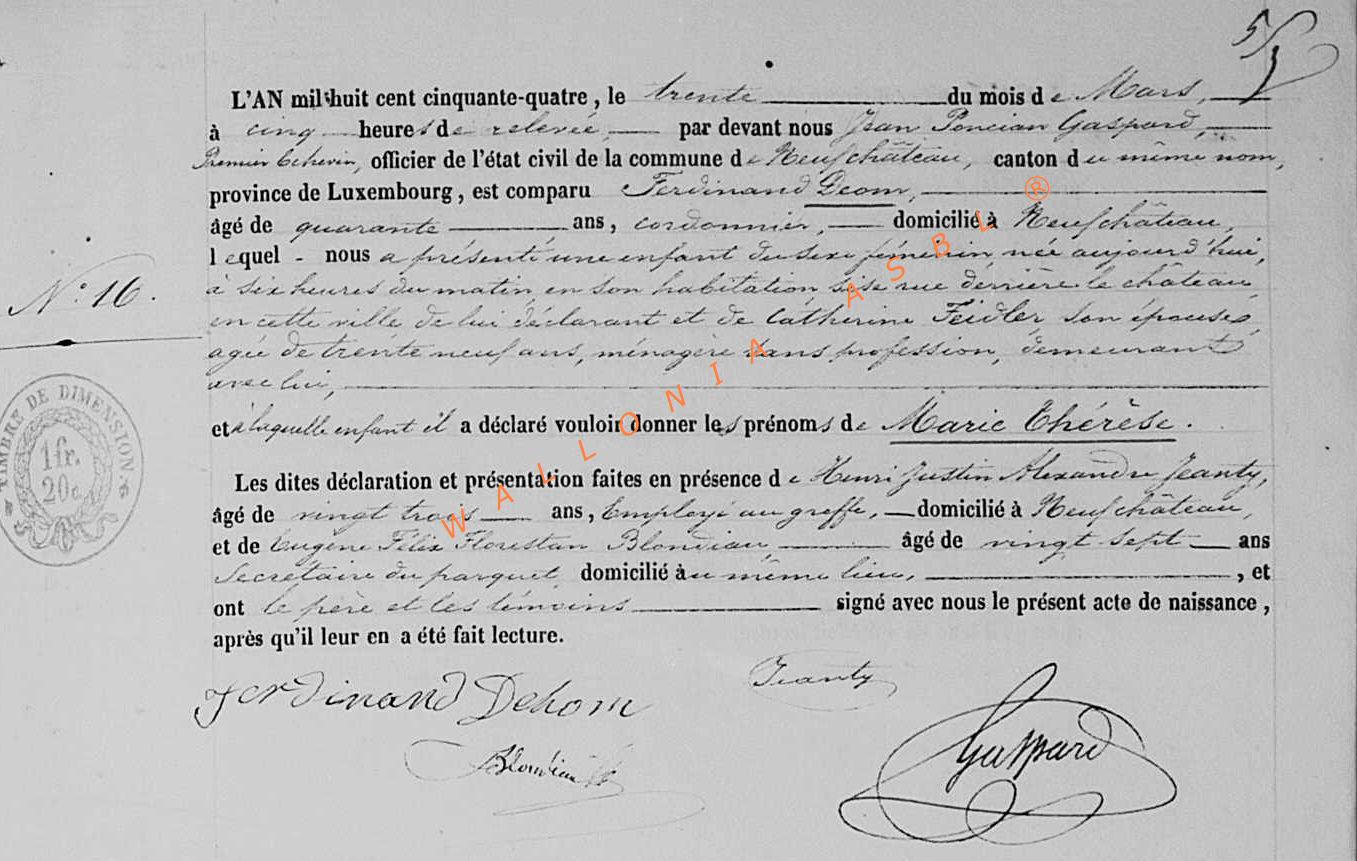 5/1
L'AN mil huit cent cinquante-quatre, le trente du mois de Mars,
à cinq heures de relevée, par devant nous Jean Poncian Gaspard,
Premier Echevin, officier de l'état civil de la commune de Neufchâteau, canton du même nom,
province de Luxembourg, est comparu Ferdinand Deom,
âgé de quarante ans, cordonnier, domicilié à Neufchâteau,
lequel - nous a présenté une enfant du sexe féminin, née aujourd'hui,
à six heures du matin, en son habitation sise rue derrière le château
en cette ville de lui déclarant et de Catherine Feidler son épouse,
agée de trente neuf ans, ménagère sans profession, demeurant
avec lui,
et à laquelle enfant il a déclaré vouloir donner les prénoms de Marie Thérèse.
Les dites déclaration et présentation faites en présence de Henri Justin Alexandre Jeanty,
âgé de vingt trois ans, Employé au greffe, domicilié à Neufchâteau,
et de Eugène Félix Florestan Blondiau, âgé de vingt sept ans
Secrétaire du parquet, domicilié au même lieu, , et
ont le père et les témoins signé avec nous le présent acte de naissance,
après qu'il leur en a été fait lecture.
N° 16.
TIMBRE DE DIMENSION
1 fr.
20 c.
Ferdinand Dehom
Jeanty
Blondiau
Gaspard
WALLONIA ASBL ®